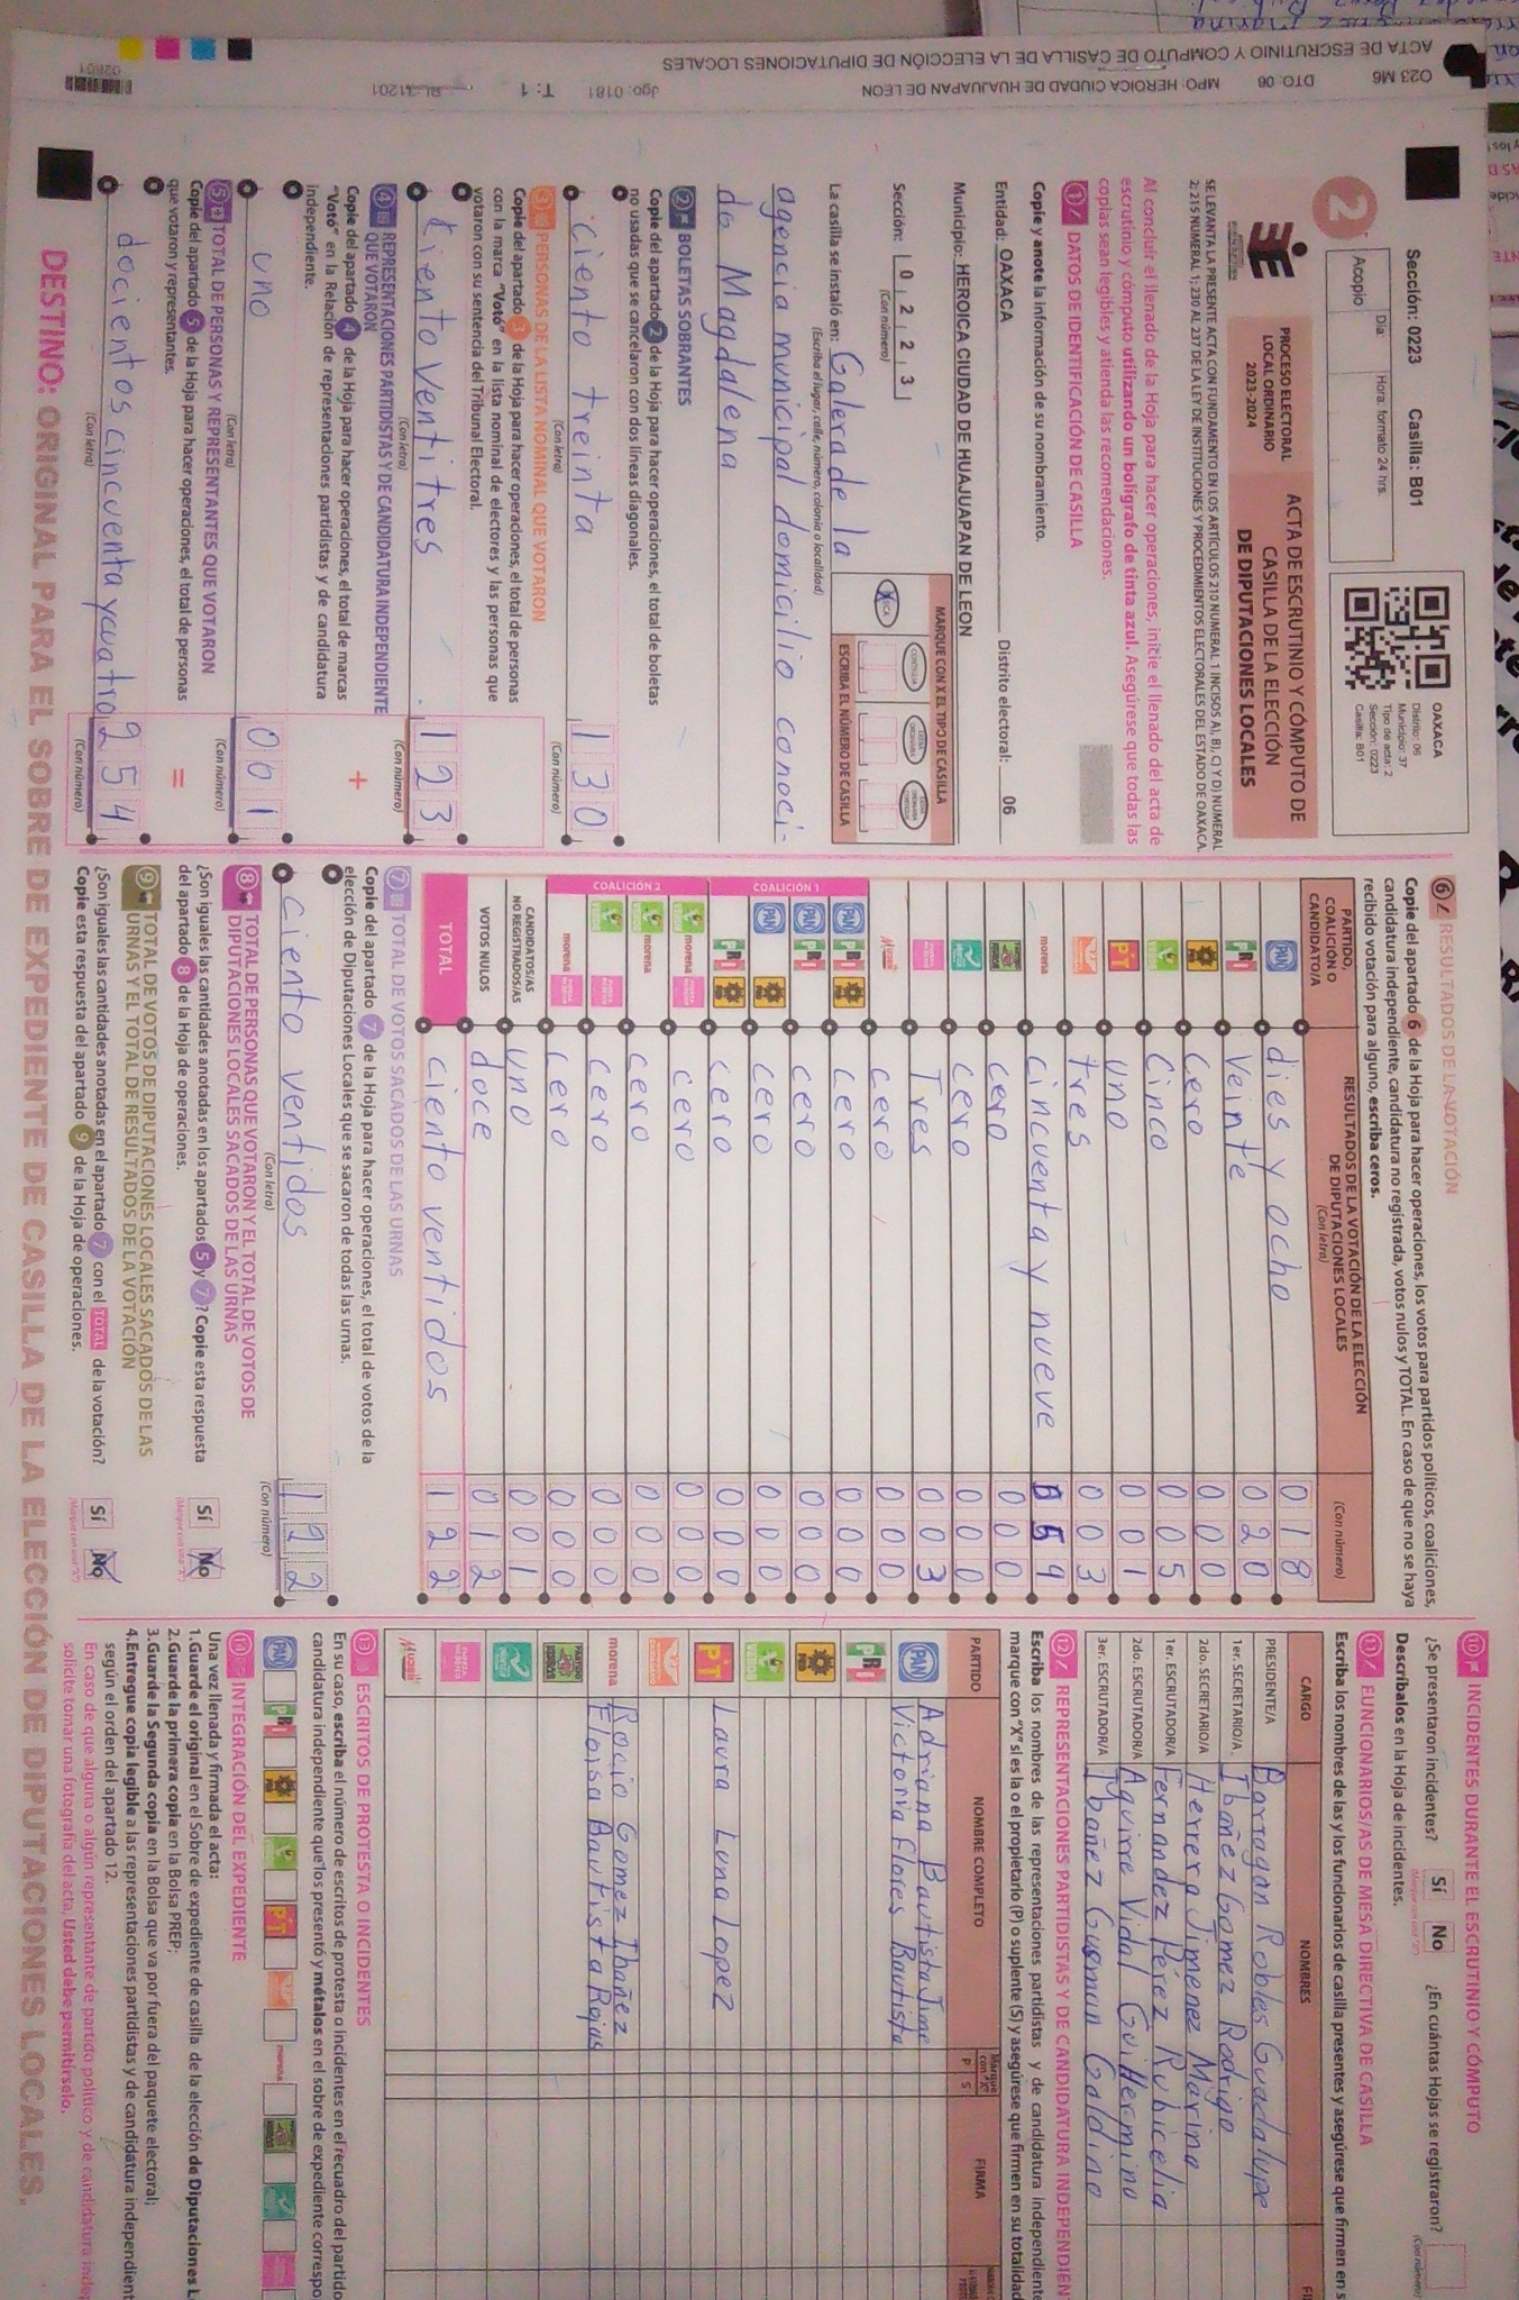 ACTA DE ESCRUTINIO Y CÓMPUTO DE CASILLA DE LA ELECCIÓN DE DIPUTACIONES LOCALES
O23 M6 DTO: 06 MPO: HEROICA CIUDAD DE HUAJUAPAN DE LEON Jgo: 0181 T: 1
Sección: 0223 Casilla: B01
2
Día: Hora: formato 24 hrs.
Acopio
OAXACA
Distrito: 06
Municipio: 37
Tipo de acta: 2
Sección: 0223
Casilla: B01
PROCESO ELECTORAL
LOCAL ORDINARIO
2023-2024
ACTA DE ESCRUTINIO Y CÓMPUTO DE
CASILLA DE LA ELECCIÓN
DE DIPUTACIONES LOCALES
SE LEVANTA LA PRESENTE ACTA CON FUNDAMENTO EN LOS ARTÍCULOS 210 NUMERAL 1 INCISOS A), B), C) Y D) NUMERAL
2; 215 NUMERAL 1); 230 AL 237 DE LA LEY DE INSTITUCIONES Y PROCEDIMIENTOS ELECTORALES DEL ESTADO DE OAXACA.
Al concluir el llenado de la Hoja para hacer operaciones, inicie el llenado del acta de
escrutinio y cómputo utilizando un bolígrafo de tinta azul. Asegúrese que todas las
copias sean legibles y atienda las recomendaciones.
1 DATOS DE IDENTIFICACIÓN DE CASILLA
Copie y anote la información de su nombramiento.
Entidad: OAXACA Distrito electoral: 06
Municipio: HEROICA CIUDAD DE HUAJUAPAN DE LEON
Sección: 0 2 2 3
(Con número)
MARQUE CON X EL TIPO DE CASILLA
ESCRIBA EL NÚMERO DE CASILLA
La casilla se instaló en: Galera de la
(Escriba el lugar, calle, número, colonia o localidad)
agencia municipal domicilio conoci-
do Magdalena
2 BOLETAS SOBRANTES
Copie del apartado 2 de la Hoja para hacer operaciones, el total de boletas
no usadas que se cancelaron con dos líneas diagonales.
ciento treinta 1 3 0
(Con letra) (Con número)
3 PERSONAS DE LA LISTA NOMINAL QUE VOTARON
Copie del apartado 3 de la Hoja para hacer operaciones, el total de personas
con la marca "Votó" en la lista nominal de electores y las personas que
votaron con su sentencia del Tribunal Electoral.
Ciento Ventitres 1 2 3
(Con letra) (Con número)
4 REPRESENTACIONES PARTIDISTAS Y DE CANDIDATURA INDEPENDIENTE
QUE VOTARON
Copie del apartado 4 de la Hoja para hacer operaciones, el total de marcas
"Votó" en la Relación de representaciones partidistas y de candidatura
independiente.
+
uno 0 0 1
(Con letra) (Con número)
5 TOTAL DE PERSONAS Y REPRESENTANTES QUE VOTARON
Copie del apartado 5 de la Hoja para hacer operaciones, el total de personas
que votaron y representantes.
=
docientos cincuenta y cuatro 2 5 4
(Con letra) (Con número)
6 RESULTADOS DE LA VOTACIÓN
Copie del apartado 6 de la Hoja para hacer operaciones, los votos para partidos políticos, coaliciones,
candidatura independiente, candidatura no registrada, votos nulos y TOTAL. En caso de que no se haya
recibido votación para alguno, escriba ceros.
PARTIDO, COALICIÓN O CANDIDATO/A
RESULTADOS DE LA VOTACIÓN DE LA ELECCIÓN DE DIPUTACIONES LOCALES
(Con letra) (Con número)
PAN dies y ocho 0 1 8
PRI Veinte 0 2 0
PRD Cero 0 0 0
VERDE Cinco 0 0 5
PT uno 0 0 1
tres 0 0 3
morena cincuenta y nueve 5 9
cero 0 0 0
cero 0 0 0
Tres 0 0 3
Mujer cero 0 0 0
COALICIÓN 1
PAN PRI PRD cero 0 0 0
PAN PRI cero 0 0 0
PAN PRD cero 0 0 0
PRI PRD cero 0 0 0
COALICIÓN 2
VERDE morena cero 0 0 0
VERDE morena cero 0 0 0
VERDE cero 0 0 0
morena cero 0 0 0
CANDIDATOS/AS NO REGISTRADOS/AS uno 0 0 1
VOTOS NULOS doce 0 1 2
TOTAL ciento ventidos 1 2 2
7 TOTAL DE VOTOS SACADOS DE LAS URNAS
Copie del apartado 7 de la Hoja para hacer operaciones, el total de votos de la
elección de Diputaciones Locales que se sacaron de todas las urnas.
ciento ventidos 1 2 2
(Con letra) (Con número)
8 TOTAL DE PERSONAS QUE VOTARON Y EL TOTAL DE VOTOS DE
DIPUTACIONES LOCALES SACADOS DE LAS URNAS
¿Son iguales las cantidades anotadas en los apartados 5 y 7? Copie esta respuesta
del apartado 8 de la Hoja de operaciones.
Sí No
9 TOTAL DE VOTOS DE DIPUTACIONES LOCALES SACADOS DE LAS
URNAS Y EL TOTAL DE RESULTADOS DE LA VOTACIÓN
¿Son iguales las cantidades anotadas en el apartado 7 con el TOTAL de la votación?
Copie esta respuesta del apartado 9 de la Hoja de operaciones.
Sí No
10 INCIDENTES DURANTE EL ESCRUTINIO Y CÓMPUTO
¿Se presentaron incidentes? Sí No ¿En cuántas Hojas se registraron?
Descríbalos en la Hoja de incidentes.
11 FUNCIONARIOS/AS DE MESA DIRECTIVA DE CASILLA
Escriba los nombres de las y los funcionarios de casilla presentes y asegúrese que firmen en
CARGO NOMBRES
PRESIDENTE/A Barragan Robles Guadalupe
1er. SECRETARIO/A Ibañez Gomez Rodrigo
2do. SECRETARIO/A Herrera Jimenez Marina
1er. ESCRUTADOR/A Fernandez Pérez Rubicelia
2do. ESCRUTADOR/A Aguirre Vidal Guillermino
3er. ESCRUTADOR/A Ibañez Gusman Galdino
12 REPRESENTACIONES PARTIDISTAS Y DE CANDIDATURA INDEPENDIEN
Escriba los nombres de las representaciones partidistas y de candidatura independiente
marque con "X" si es la o el propietario (P) o suplente (S) y asegúrese que firmen en su totalidad
PARTIDO NOMBRE COMPLETO Marque con "X" P S FIRMA
PAN Adriana Bautista Jime
Victoria Flores Bautista
PRI
PRD
VERDE
PT Laura Luna Lopez
morena Rocio Gomez Ibañez
Eloisa Bautista Rojas
Mujer
13 ESCRITOS DE PROTESTA O INCIDENTES
En su caso, escriba el número de escritos de protesta o incidentes en el recuadro del partido
candidatura independiente que los presentó y métalos en el sobre de expediente correspo
PAN PRI PRD VERDE PT morena
14 INTEGRACIÓN DEL EXPEDIENTE
Una vez llenada y firmada el acta:
1.Guarde el original en el Sobre de expediente de casilla de la elección de Diputaciones L
2.Guarde la primera copia en la Bolsa PREP;
3.Guarde la Segunda copia en la Bolsa que va por fuera del paquete electoral;
4.Entregue copia legible a las representaciones partidistas y de candidatura independient
según el orden del apartado 12.
En caso de que alguna o algún representante de partido político y de candidatura indep
solicite tomar una fotografía del acta, Usted debe permitírselo.
DESTINO: ORIGINAL PARA EL SOBRE DE EXPEDIENTE DE CASILLA DE LA ELECCIÓN DE DIPUTACIONES LOCALES.